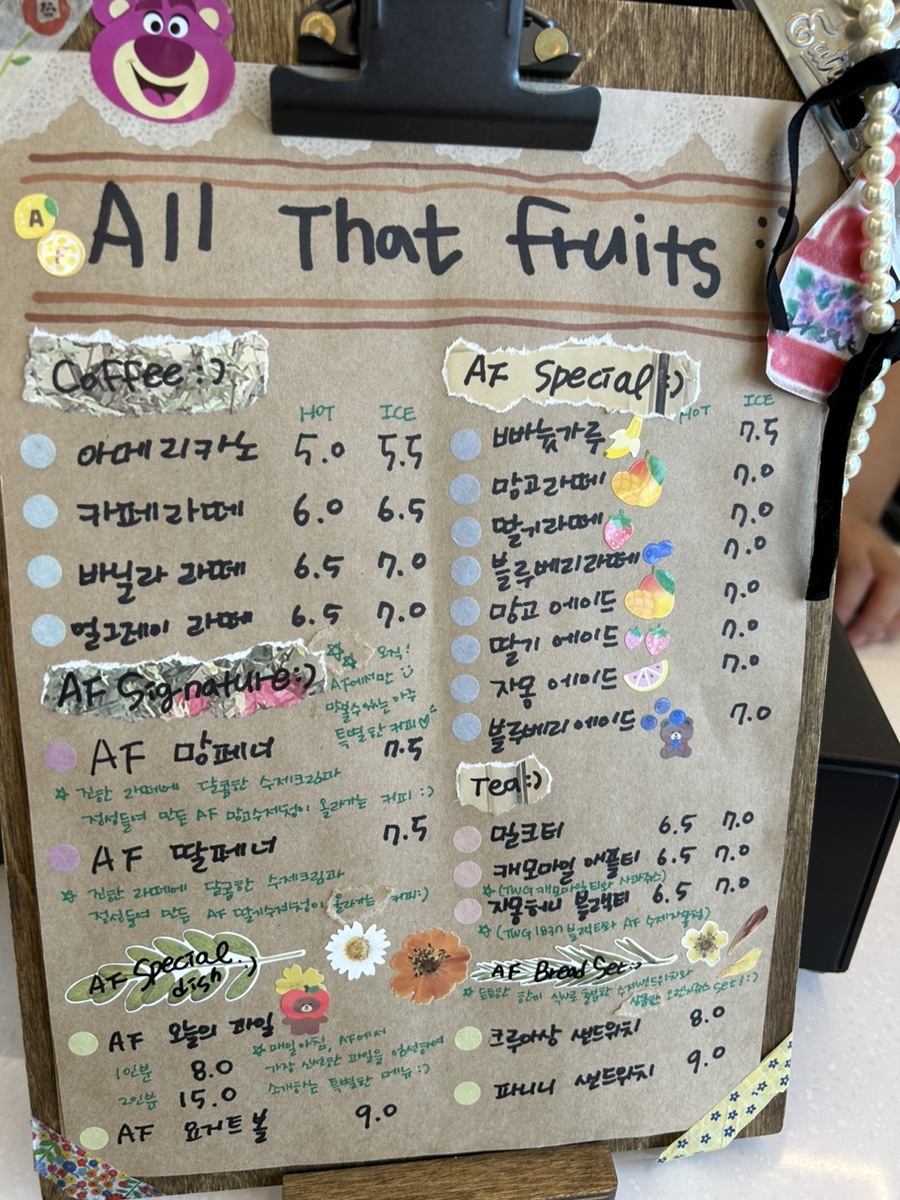 A
F
All That fruits :)
Coffee :)
HOT ICE
아메리카노 5.0 5.5
카페라떼 6.0 6.5
바닐라 라떼 6.5 7.0
얼그레이 라떼 6.5 7.0
AF Signature :)
오직!
AF에서만
맛볼수있는 아주
특별한 커피♡
AF 망페너 7.5
☆ 진한 라떼에 달콤한 수제크림과
정성들여 만든 AF 망고수제청이 올라가는 커피 :)
AF 딸페너 7.5
☆ 진한 라떼에 달콤한 수제크림과
정성들여 만든 AF 딸기수제청이 올라가는 커피:)
AF Special dish :)
AF 오늘의 과일
1인분 8.0
2인분 15.0
☆ 매일아침, AF에서
가장 신선한 과일을 엄선하여
소개하는 특별한 메뉴:)
AF 요거트볼 9.0
AF Special :)
HOT ICE
빠눖가루 7.5
망고라떼 7.0
딸기라떼 7.0
블루베리라떼 7.0
망고 에이드 7.0
딸기 에이드 7.0
자몽 에이드 7.0
블루베리에이드 7.0
Tea:)
밀크티 6.5 7.0
캐모마일 애플티 6.5 7.0
☆ (TWG 캐모마일티와 사과쥬스)
자몽허니 블랙티 6.5 7.0
☆ (TWG 1837 블랙티와 AF 수제자몽청)
AF Bread Set :)
☆ 든든한 한끼 식사로 충분한 수제샌드위치와
상큼한 오렌지쥬스 set!:)
크루아상 샌드위치 8.0
파니니 샌드위치 9.0